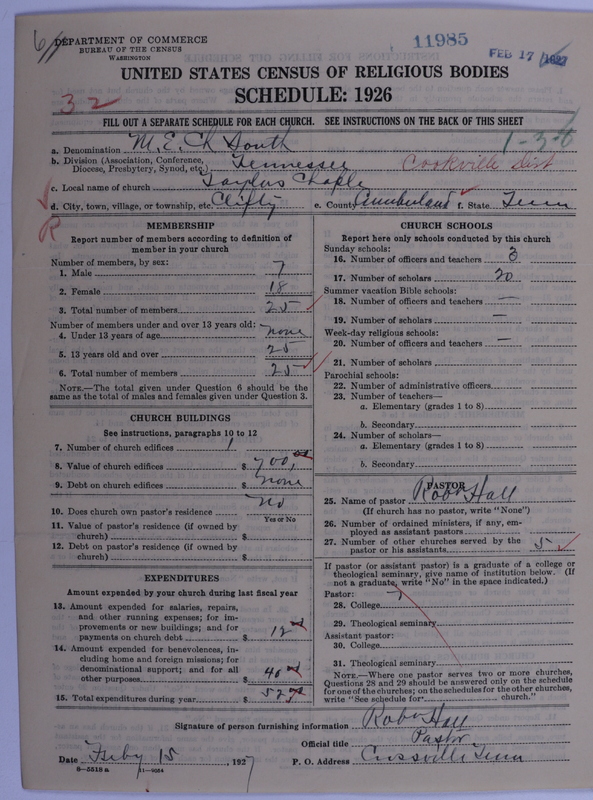 DEPARTMENT OF COMMERCE
BUREAU OF THE CENSUS
WASHINGTON
11985
FEB 17 1927
UNITED STATES CENSUS OF RELIGIOUS BODIES
SCHEDULE: 1926
32
FILL OUT A SEPARATE SCHEDULE FOR EACH CHURCH. SEE INSTRUCTIONS ON THE BACK OF THIS SHEET
a. Denomination M. E. Ch South
1-36
b. Division (Association, Conference, Diocese, Presbytery, Synod, etc.) Tennessee Cookville Dist
c. Local name of church Taylors Chaple
d. City, town, village, or township, etc. Clifty e. County Cumberland f. State Tenn
R
MEMBERSHIP
Report number of members according to definition of
member in your church
Number of members, by sex:
1. Male 7
2. Female 18
3. Total number of members 25
Number of members under and over 13 years old:
4. Under 13 years of age none
5. 13 years old and over 25
6. Total number of members 25
NOTE.—The total given under Question 6 should be the
same as the total of males and females given under Question 3.
CHURCH BUILDINGS
See instructions, paragraphs 10 to 12
7. Number of church edifices 1
8. Value of church edifices $700
9. Debt on church edifices $ none
10. Does church own pastor's residence no
Yes or No
11. Value of pastor's residence (if owned by
church) $
12. Debt on pastor's residence (if owned by
church) $
EXPENDITURES
Amount expended by your church during last fiscal year
13. Amount expended for salaries, repairs,
and other running expenses; for im-
provements or new buildings; and for
payments on church debt $ 12
14. Amount expended for benevolences, in-
cluding home and foreign missions; for
denominational support; and for all
other purposes $ 40
15. Total expenditures during year $ 52
CHURCH SCHOOLS
Report here only schools conducted by this church
Sunday schools:
16. Number of officers and teachers 3
17. Number of scholars 20
Summer vacation Bible schools:
18. Number of officers and teachers —
19. Number of scholars —
Week-day religious schools:
20. Number of officers and teachers —
21. Number of scholars
Parochial schools:
22. Number of administrative officers
23. Number of teachers—
a. Elementary (grades 1 to 8)
b. Secondary
24. Number of scholars—
a. Elementary (grades 1 to 8)
b. Secondary
PASTOR
25. Name of pastor Robt Hall
(If church has no pastor, write "None")
26. Number of ordained ministers, if any, em-
ployed as assistant pastors
27. Number of other churches served by the
pastor or his assistants 5
If pastor (or assistant pastor) is a graduate of a college or
theological seminary, give name of institution below. (If
not a graduate, write "No" in the space indicated.)
Pastor:
28. College
29. Theological seminary
Assistant pastor:
30. College
31. Theological seminary
NOTE.—Where one pastor serves two or more churches,
Questions 28 and 29 should be answered only on the schedule
for one of the churches; on the schedules for the other churches,
write "See schedule for church."
Signature of person furnishing information Robt Hall
Official title Pastor
Date Feby 15, 1927 P. O. Address Crossville Tenn
8—5518 a 11—9064